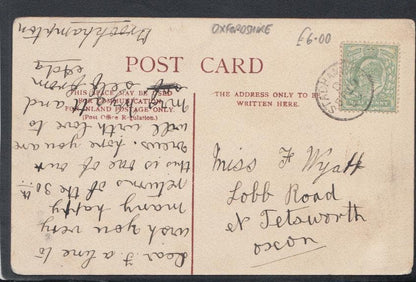 OXFORDSHIRE
£6-00
POST CARD
THIS SPACE MAY BE USED
FOR COMMUNICATION
FOR INLAND POSTAGE ONLY.
(Post Office Regulation.)
THE ADDRESS ONLY TO BE
WRITTEN HERE.
Miss F Wyatt
Lobb Road
Nr Tetsworth
Oxon
Dear F a line to
wish you very
many happy
returns of the 30th
this is one of our
views. hope you are
well with love to
Mr and
self from
Ada
Brookhampton